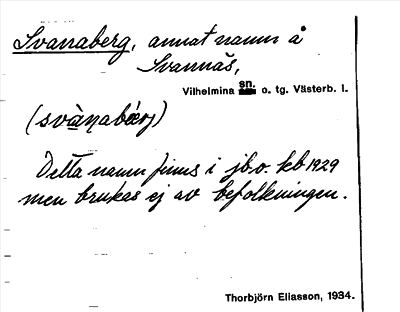 Svanaberg, annat namn å
Svannäs,
Vilhelmina sn. o. tg. Västerb. l.
Detta namn finns i jb. o. kb 1929
men brukas ej av befolkningen.
Thorbjörn Eliasson, 1934.